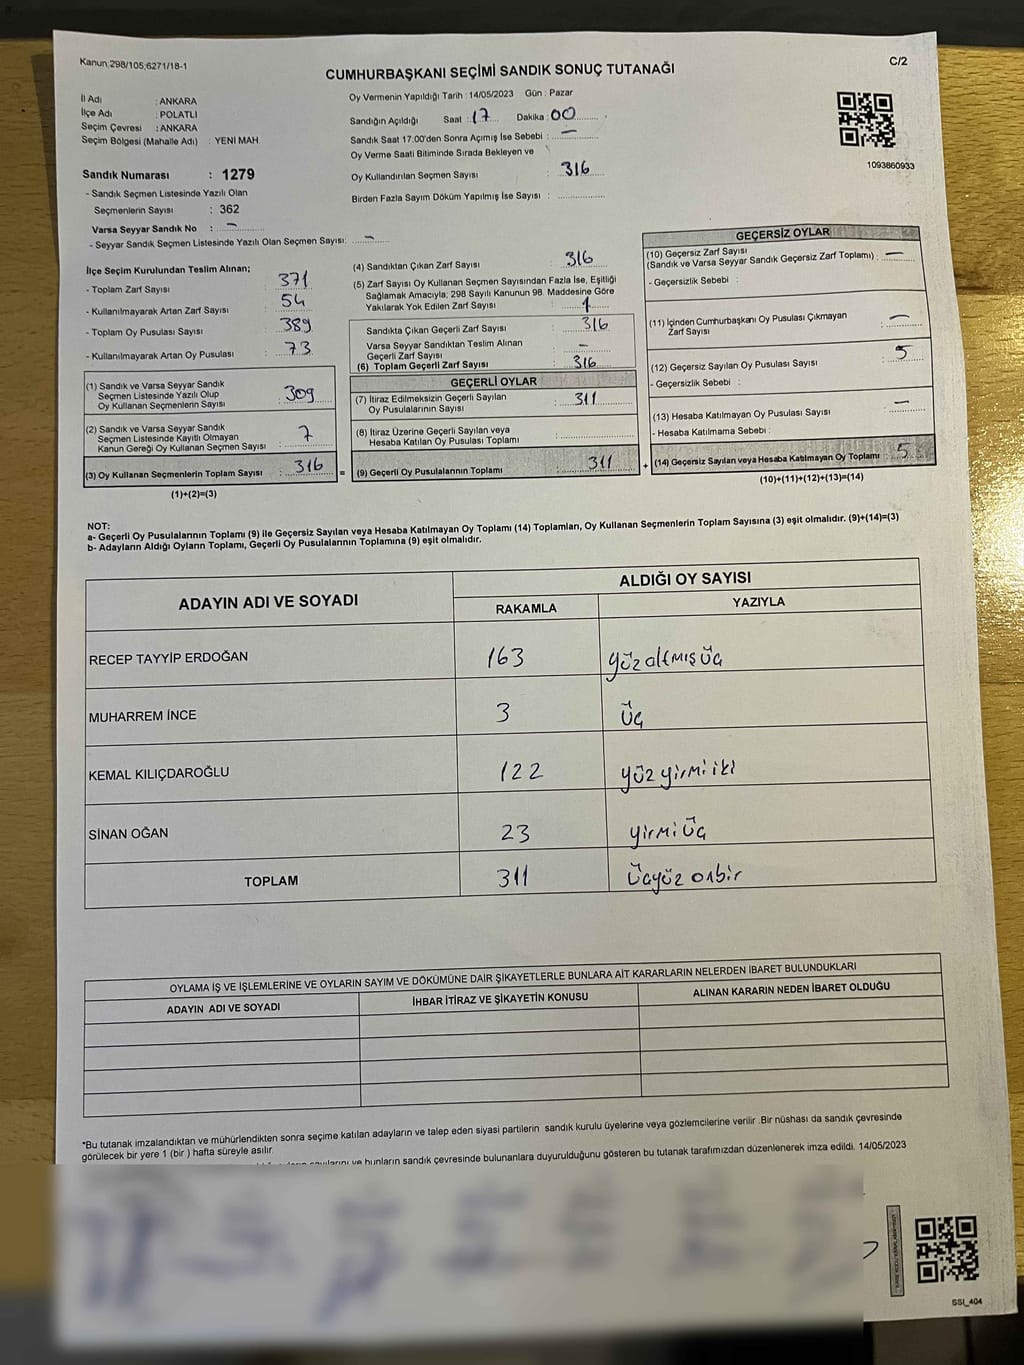 Kanun;298/105,6271/18-1
C/2
CUMHURBAŞKANI SEÇİMİ SANDIK SONUÇ TUTANAĞI
İl Adı : ANKARA
İlçe Adı : POLATLI
Seçim Çevresi : ANKARA
Seçim Bölgesi (Mahalle Adı) : YENİ MAH
Sandık Numarası : 1279
- Sandık Seçmen Listesinde Yazılı Olan
Seçmenlerin Sayısı : 362
Varsa Seyyar Sandık No : –
- Seyyar Sandık Seçmen Listesinde Yazılı Olan Seçmen Sayısı: –
Oy Vermenin Yapıldığı Tarih : 14/05/2023 Gün : Pazar
Sandığın Açıldığı Saat : 17 Dakika : 00
Sandık Saat 17:00'den Sonra Açımış İse Sebebi : –
Oy Verme Saati Bitiminde Sırada Bekleyen ve
Oy Kullandırılan Seçmen Sayısı : 316
Birden Fazla Sayım Döküm Yapılmış İse Sayısı :
1093860933
İlçe Seçim Kurulundan Teslim Alınan;
- Toplam Zarf Sayısı : 371
- Kullanılmayarak Artan Zarf Sayısı : 54
- Toplam Oy Pusulası Sayısı : 389
- Kullanılmayarak Artan Oy Pusulası : 73
(1) Sandık ve Varsa Seyyar Sandık
Seçmen Listesinde Yazılı Olup
Oy Kullanan Seçmenlerin Sayısı : 309
(2) Sandık ve Varsa Seyyar Sandık
Seçmen Listesinde Kayıtlı Olmayan
Kanun Gereği Oy Kullanan Seçmen Sayısı : 7
(3) Oy Kullanan Seçmenlerin Toplam Sayısı : 316
(1)+(2)=(3)
=
(4) Sandıktan Çıkan Zarf Sayısı : 316
(5) Zarf Sayısı Oy Kullanan Seçmen Sayısından Fazla İse, Eşitliği
Sağlamak Amacıyla; 298 Sayılı Kanunun 98. Maddesine Göre
Yakılarak Yok Edilen Zarf Sayısı : 1
Sandıkta Çıkan Geçerli Zarf Sayısı : 316
Varsa Seyyar Sandıktan Teslim Alınan
Geçerli Zarf Sayısı : –
(6) Toplam Geçerli Zarf Sayısı : 316
GEÇERLİ OYLAR
(7) İtiraz Edilmeksizin Geçerli Sayılan
Oy Pusulalarının Sayısı : 311
(8) İtiraz Üzerine Geçerli Sayılan veya
Hesaba Katılan Oy Pusulası Toplamı :
(9) Geçerli Oy Pusulalarının Toplamı : 311
+
GEÇERSİZ OYLAR
(10) Geçersiz Zarf Sayısı
(Sandık ve Varsa Seyyar Sandık Geçersiz Zarf Toplamı) : –
- Geçersizlik Sebebi :
(11) İçinden Cumhurbaşkanı Oy Pusulası Çıkmayan
Zarf Sayısı : –
(12) Geçersiz Sayılan Oy Pusulası Sayısı : 5
- Geçersizlik Sebebi :
(13) Hesaba Katılmayan Oy Pusulası Sayısı : –
- Hesaba Katılmama Sebebi :
(14) Geçersiz Sayılan veya Hesaba Katılmayan Oy Toplamı : 5
(10)+(11)+(12)+(13)=(14)
NOT:
a- Geçerli Oy Pusulalarının Toplamı (9) ile Geçersiz Sayılan veya Hesaba Katılmayan Oy Toplamı (14) Toplamları, Oy Kullanan Seçmenlerin Toplam Sayısına (3) eşit olmalıdır. (9)+(14)=(3)
b- Adayların Aldığı Oyların Toplamı, Geçerli Oy Pusulalarının Toplamına (9) eşit olmalıdır.
ADAYIN ADI VE SOYADI
ALDIĞI OY SAYISI
RAKAMLA YAZIYLA
RECEP TAYYİP ERDOĞAN 163 yüz altmış üç
MUHARREM İNCE 3 üç
KEMAL KILIÇDAROĞLU 122 yüz yirmi iki
SİNAN OĞAN 23 yirmi üç
TOPLAM 311 üçyüz onbir
OYLAMA İŞ VE İŞLEMLERİNE VE OYLARIN SAYIM VE DÖKÜMÜNE DAİR ŞİKAYETLERLE BUNLARA AİT KARARLARIN NELERDEN İBARET BULUNDUKLARI
ADAYIN ADI VE SOYADI İHBAR İTİRAZ VE ŞİKAYETİN KONUSU ALINAN KARARIN NEDEN İBARET OLDUĞU
*Bu tutanak imzalandıktan ve mühürlendikten sonra seçime katılan adayların ve talep eden siyasi partilerin sandık kurulu üyelerine veya gözlemcilerine verilir .Bir nüshası da sandık çevresinde
görülecek bir yere 1 (bir ) hafta süreyle asılır.
ve bunların sandık çevresinde bulunanlara duyurulduğunu gösteren bu tutanak tarafımızdan düzenlenerek imza edildi. 14/05/2023
SSI_404